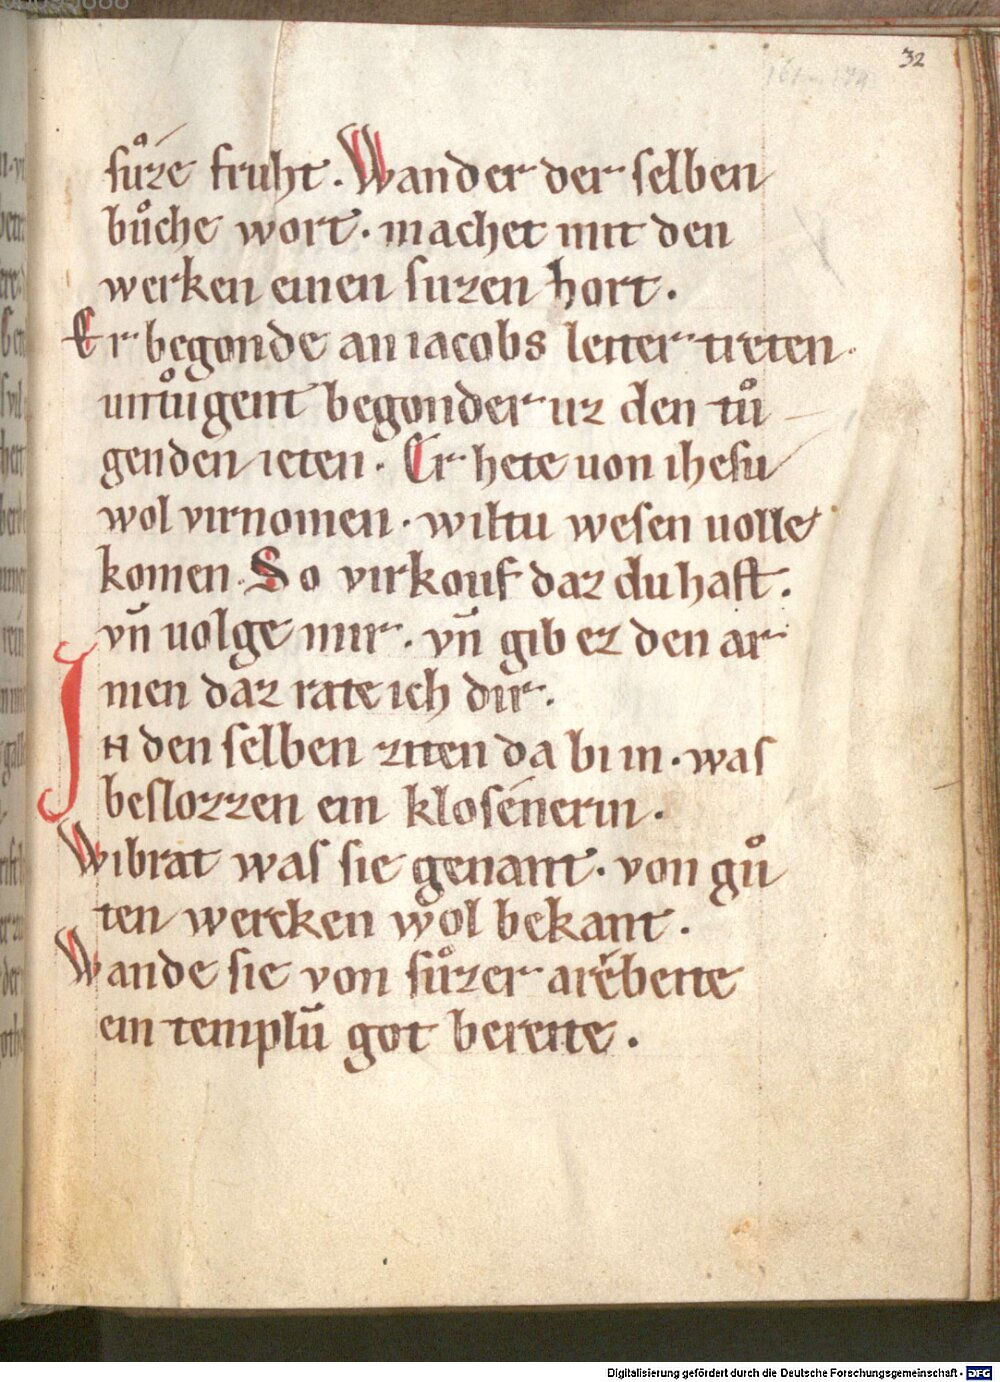 32
suͦze fruht. Wander der selben
buͦche wort. machet mit den
werken einen suzen hort.
Er begonde an iacobs leiter treten
untuͦgent begonder uz den tuͦ
genden ieten. Er hete uon ihesu
wol virnomen. wiltu wesen uolle
komen. So virkouf daz du hast.
vn̄ uolge mir. vn̄ gib ez den ar
men daz rate ich dir.
In den selben ziten da bi in. was
beslozzen ein klosenerin.
Wibrat was sie genant. von guͦ
ten wercken wol bekant.
Wande sie von suͦzer arebeite
ein templū got bereite.
Digitalisierung gefördert durch die Deutsche Forschungsgemeinschaft - DFG